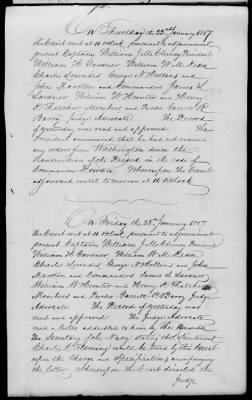 On Thursday the 22d January 1857.
the Court met at 11 o'clock, pursuant to adjournment
present Captain William Jolliffe President
William H. Gardner William
Charles Lowndes George N. Hollins and
John Marston and Commanders James L.
Lardner William W Hunter and Henry
K. Thatcher Members and Purser Garret R
Barry Judge Advocate The Record
of yesterday was read and approved The
President announced that he had received
any orders from Washington since the
transmission of the Record in the case of
Commander Rowan Whereupon the Court
adjourned until to morrow at 11 O'Clock
On Friday the 23d January 1857
the Court met at 11 o'clock, pursuant to adjournment
present Captains William President
William H Gardner William
Charles Lowndes George N Hollins and John
Marston and Commanders James L. Lardner
William W Hunter and Henry K Thatcher
Members and Purser Garret R Barry Judge
Advocate The Record of yesterday was
read and approved The Judge Advocate
read a letter addressed to him by the Honorable
the Secretary of the Navy stating that Lieutenant
Charles E. Fleming would be tried by this Court
upon the Charge and Specifications accompanying
the letter Whereupon the Court directed the
Judge